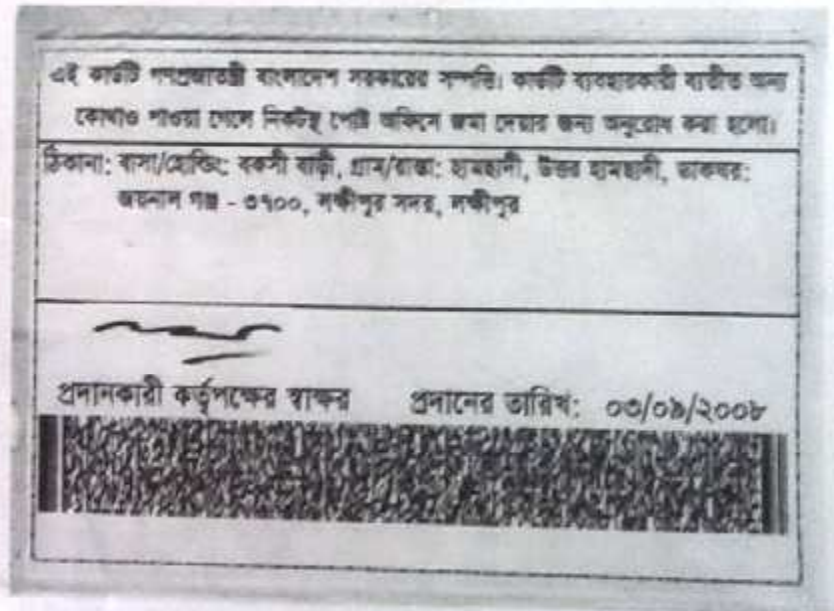 এই কার্ডটি গণপ্রজাতন্ত্রী বাংলাদেশ সরকারের সম্পত্তি। কার্ডটি ব্যবহারকারী ব্যতীত অন্য
কোথাও পাওয়া গেলে নিকটস্থ পোষ্ট অফিসে জমা দেয়ার জন্য অনুরোধ করা হলো।
ঠিকানা: বাসা/হোল্ডিং: বকসী বাড়ী, গ্রাম/রাস্তা: হামছাদী, উত্তর হামছাদী, ডাকঘর:
গঞ্জ - ৩৭০০, লক্ষীপুর সদর, লক্ষীপুর
প্রদানকারী কর্তৃপক্ষের স্বাক্ষর প্রদানের তারিখ: ০৩/০৯/২০০৮